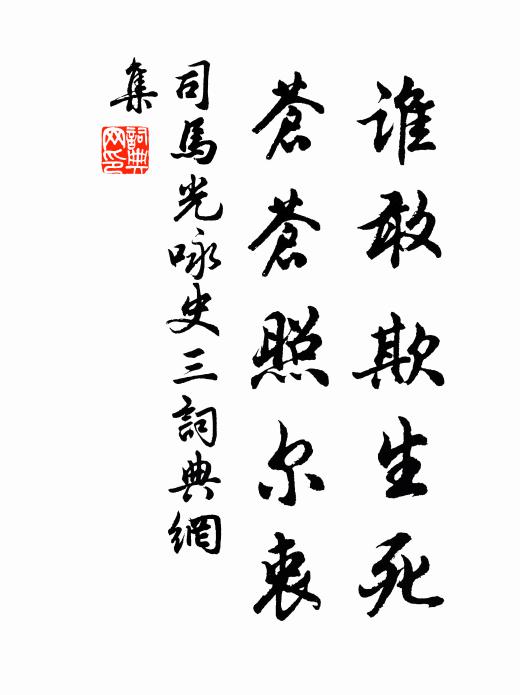 誰敢欺生死
蒼蒼照尔衷
司馬光咏史三詞典網
集
詞典網印